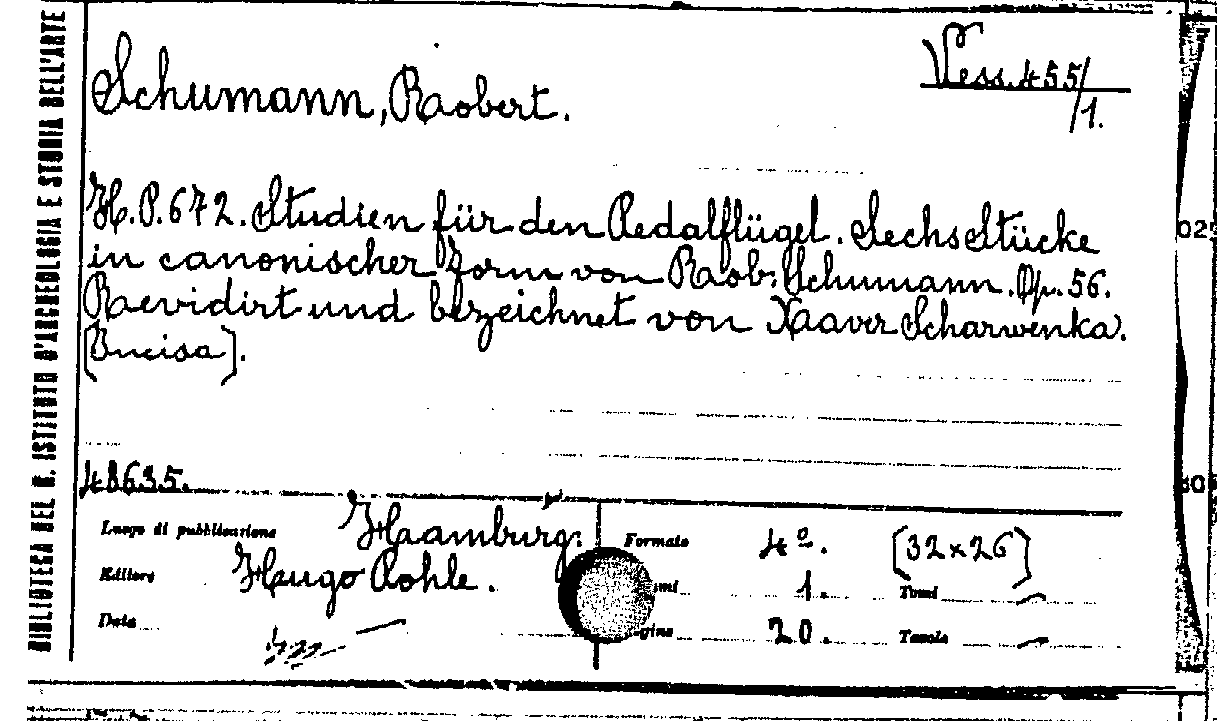 BIBLIOTECA DEL R. ISTITUTO D'ARCHEOLOGIA E STORIA DELL'ARTE
Vess. 455/1.
Schumann, Robert.
H.P.672. Studien für den Pedalflügel. Sechs Stücke
in canonischer Form von Rob. Schumann. Op. 56.
Revidirt und bezeichnet von Xaver Scharwenka.
[Incisa].
48635.
Luogo di pubblicazione Hamburg:
Editore Hugo Pohle.
Data
Formato 4º. [32x26]
1. Tomi —
20. Tavole —